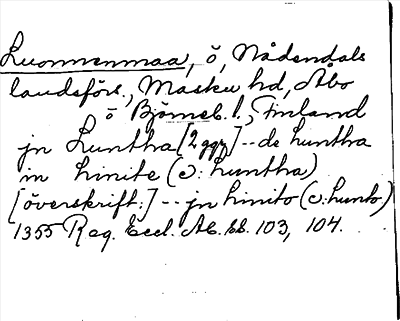 Luonnenmaa, ö, Nådendals
landsförs., Masku hd, Åbo
o Björneb. l., Finland
jn Luntha [2 ggr] -- de huntha
in hinite (ɔ: huntha)
[överskrift:] -- jn hinito (ɔ: hunto)
1355 Reg. Eccl. Ab. bl. 103, 104.